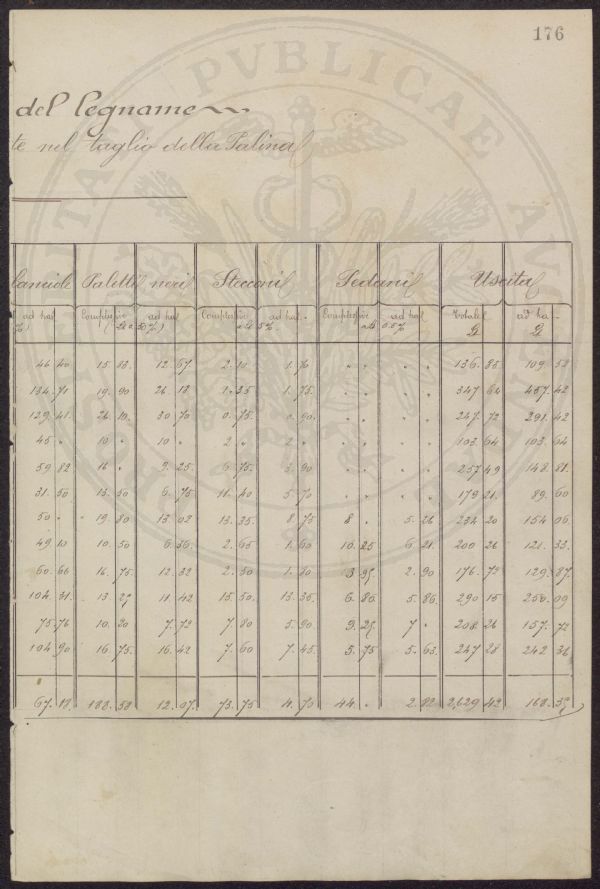 176
PVBLICAE
del legname
te nel taglio della Palina
lanciole Paletti neri Stecconi Pedani Uscita
ad ha Complessive ad ha Complessive ad ha Complessive ad ha Totale ad ha
46 40 15 18 12 67 2 10 1 70 " " " " 136 85 109 53
134 71 19 90 26 18 1 35 1 75 " " " " 347 64 457 42
129 41 26 10 30 70 0 75 0 90 " " " " 247 72 291 42
45 " 10 " 10 " 2 " 2 " " " " " 103 64 103 64
59 82 16 " 9 25 6 75 3 90 " " " " 257 49 148 81
31 50 13 50 6 75 11 40 5 70 " " " " 179 21 89 60
50 " 19 80 13 02 13 35 8 75 8 " 5 26 234 20 154 06
49 10 10 50 6 36 2 65 1 60 10 25 6 21 200 26 121 33
60 66 16 75 12 32 2 50 1 80 3 95 2 90 176 72 129 87
104 31 13 25 11 42 15 50 13 36 6 80 5 86 290 15 250 09
75 76 10 20 7 72 7 80 5 90 9 25 7 " 208 26 157 72
104 90 16 75 16 42 7 60 7 45 5 75 5 63 247 28 242 36
67 18 188 58 12 07 73 75 4 70 44 " 2 82 2,629 42 168 35